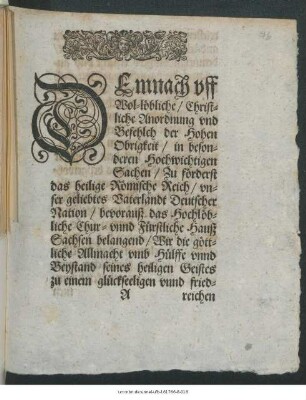 DEmnach vff
Wol-löbliche / Christ-
liche Anordnung vnd
Befehlch der Hohen
Obrigkeit / in beson-
deren Hochwichtigen
Sachen / Zu förderst
das heilige Römische Reich / vn-
ser geliebtes Vaterlandt Deutscher
Nation / bevorauß das Hochlöb-
liche Chur- vnnd Fürstliche Hauß
Sachsen belangend / Wir die gött-
liche Allmacht vmb Hülffe vnnd
Beystand seines heiligen Geistes
zu einem glückseeligen vnnd fried-
A reichen